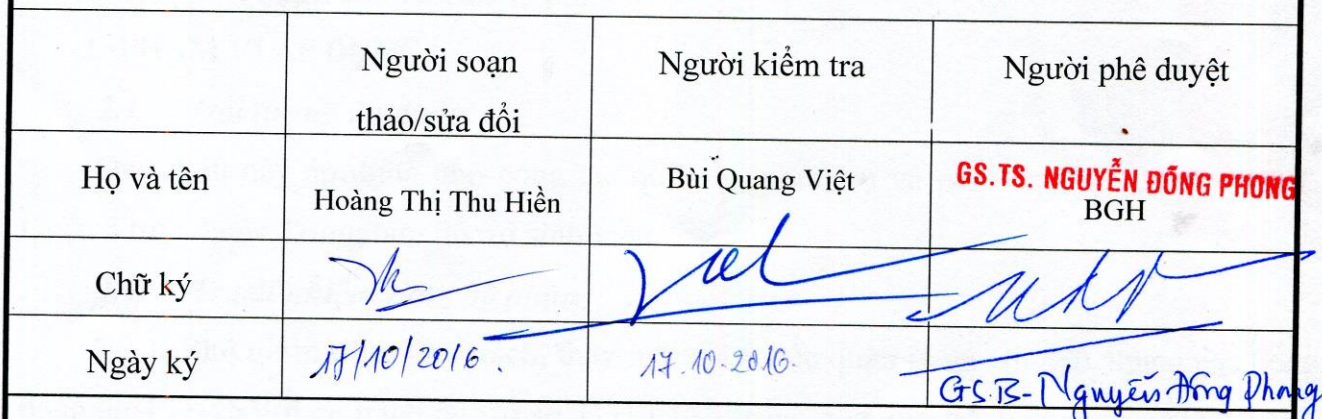 Người soạn
thảo/sửa đổi
Người kiểm tra
Người phê duyệt
Họ và tên
Hoàng Thị Thu Hiền
Bùi Quang Việt
GS.TS. NGUYỄN ĐÔNG PHONG
BGH
Chữ ký
Ngày ký
17/10/2016.
17.10.2016.
GS.TS- Nguyễn Đông Phong